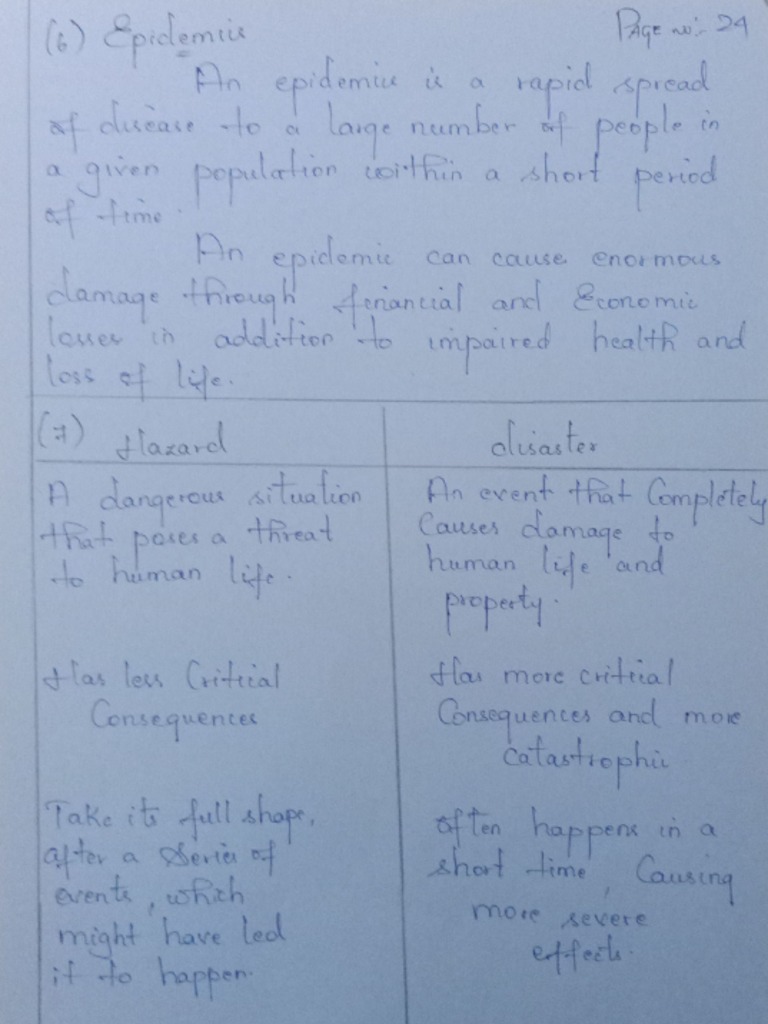 (6) Epidemic
Page no:- 24
An epidemic is a rapid spread
of disease to a large number of people in
a given population within a short period
of time.
An epidemic can cause enormous
damage through financial and Economic
losses in addition to impaired health and
loss of life.
(7) Hazard
disaster
A dangerous situation
that poses a threat
to human life.
An event that Completely
Causes damage to
human life and
property.
Has less Critical
Consequences
Has more critical
Consequences and more
catastrophic
Take its full shape,
after a Series of
events, which
might have led
it to happen.
often happens in a
short time, Causing
more severe
effects.